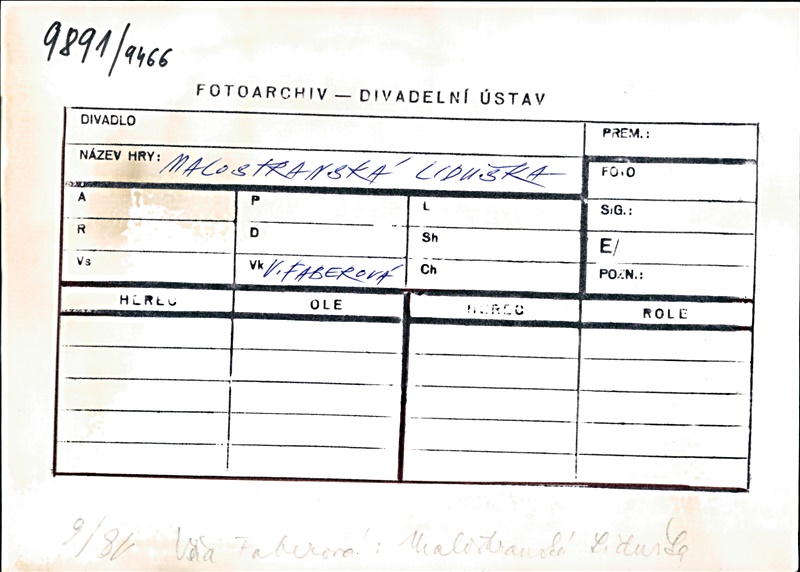 9891/9466
FOTOARCHIV — DIVADELNÍ ÚSTAV
DIVADLO
PREM.:
NÁZEV HRY: MALOSTRANSKÁ LIDUŠKA
FOTO
A P L
SIG.:
R D Sh
E/
Vs Vk V. FABEROVÁ Ch
POZN.:
HEREC OLE HEREC ROLE
9/81 Věra Faberová: Malostranská Liduška